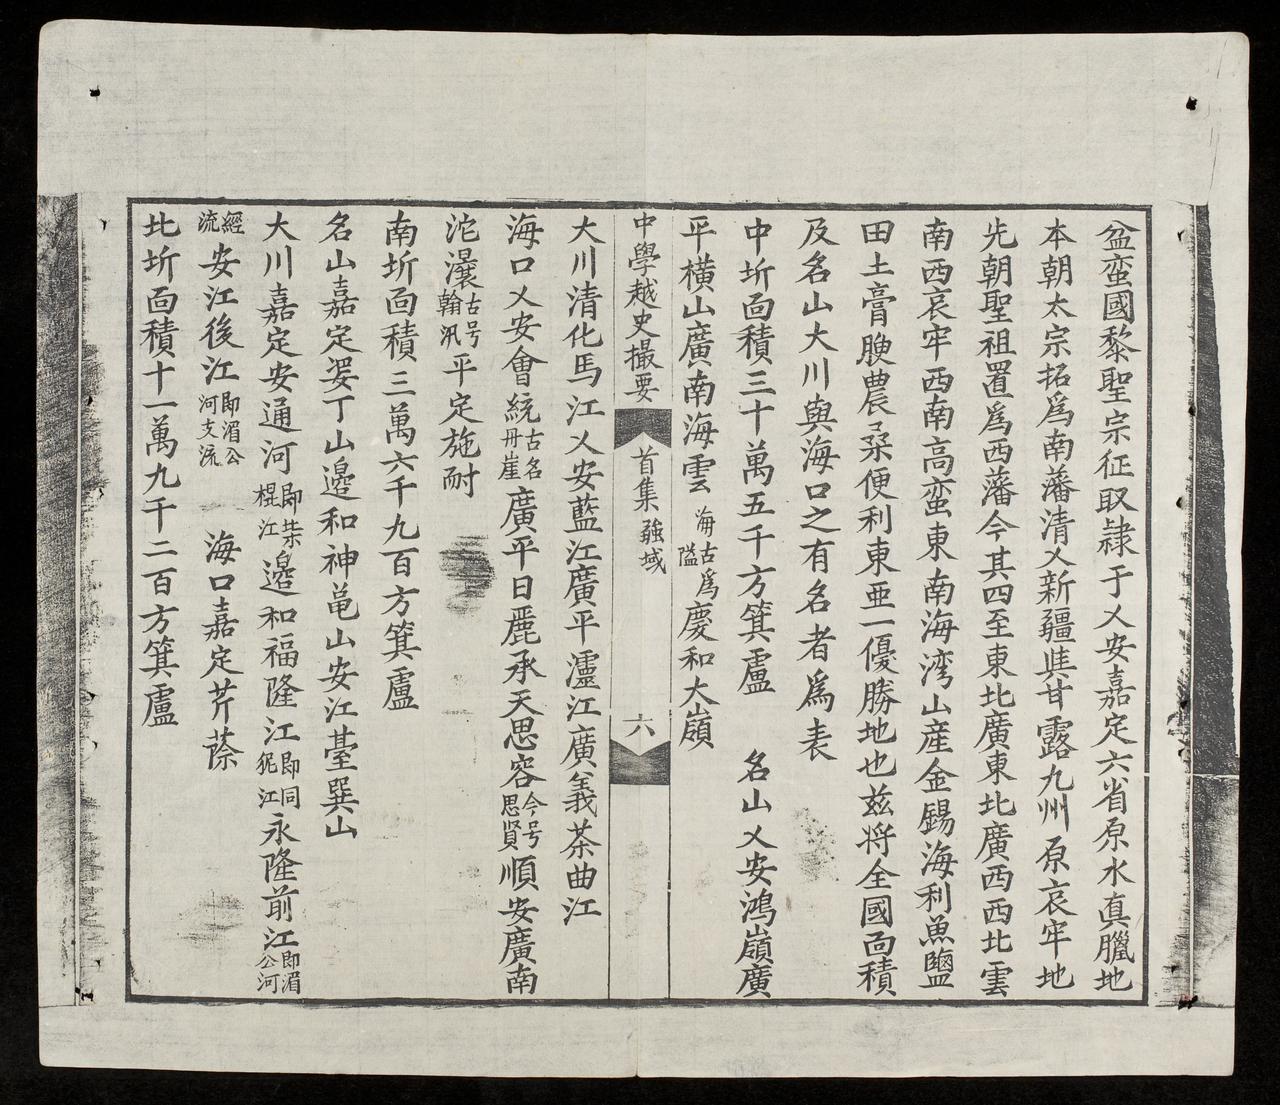 盆蛮國黎聖宗征取隷于乂安嘉定六省原水真臘地
本朝太宗拓爲南藩清乂新疆與甘露九州原哀牢地
先朝聖祖置爲西藩今其四至東北廣東北廣西西北雲
南西哀牢西南高蛮東南海湾山産金錫海利魚鹽
田土膏腴農桑便利東亜一優勝地也茲将全國面積
及名山大川與海口之有名者爲表
中圻面積三十萬五千方箕盧 名山乂安鴻嶺廣
平横山廣南海雲古爲海隘慶和大嶺
中學越史撮要 首集 疆域 六
大川清化馬江乂安藍江廣平瀘江廣義茶曲江
海口乂安會統古名丹崖廣平日麗承天思容今号思賢順安廣南
沱瀼古号翰汛平定施耐
南圻面積三萬六千九百方箕盧
名山嘉定婆丁山邊和神亀山安江䑓巽山
大川嘉定安通河即柴棍江邉和福隆江即同狔江永隆前江即湄公河
經流安江後江即湄公河支流 海口嘉定芹蒢
北圻面積十一萬九千二百方箕盧